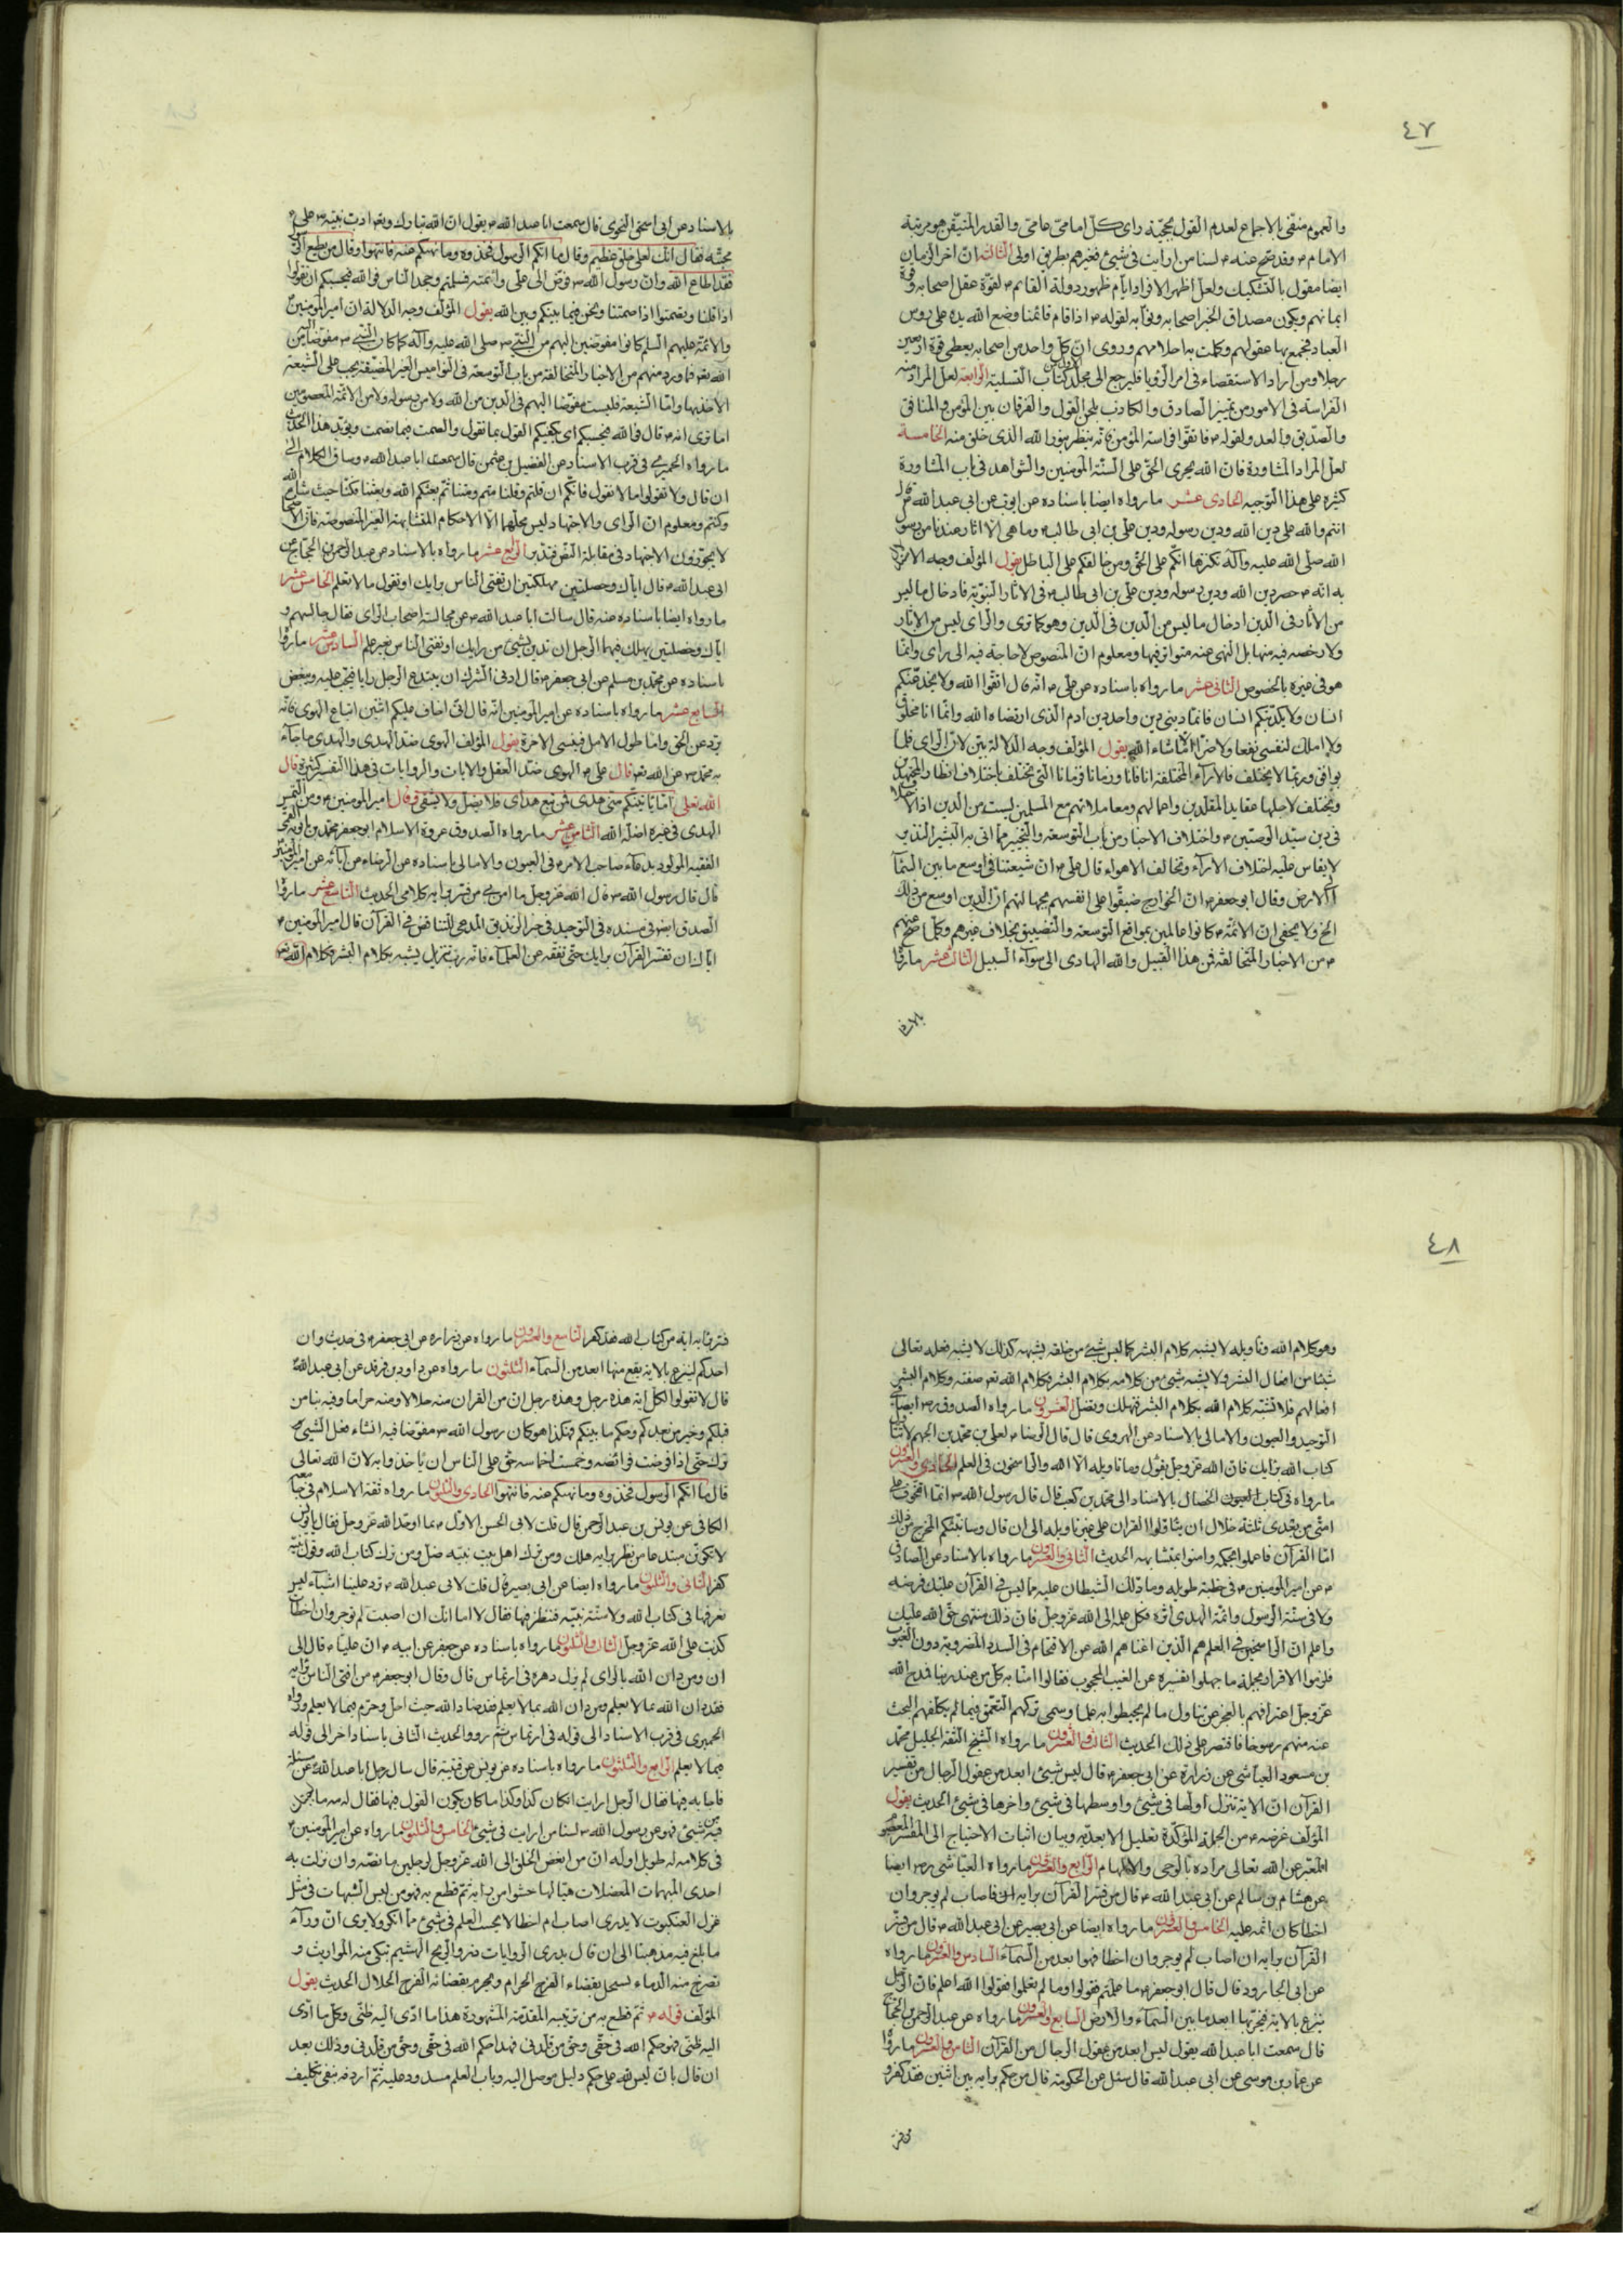 ٤٧
والعموم منفی بالاجماع لعدم القول بحجّیة رای کل امامیّ عامّی والقدر المتیقّن هو مرتبة
الامام ۴ وقد صحّ عنه ۴ لسنا من ارایت فی شیئ فغیرهم بطریق اولی الثالثه انّ آخر الزمان
ایضا مقول بالتشکیک ولعلّ اظهر الافراد ایّام ظهور دولة القائم ۴ لقوّة عقل اصحابه وقوة
ایمانهم ویکون مصداق الخبر اصحابه ونوّابه لقوله ۴ اذا قام قائمنا وضع الله یده علی رؤس
العباد فجمع بها عقولهم وکملت به احلامهم وروی انّ کلّ واحد من اصحابه یعطی قوة اربعین
رجلا ومن اراد الاستقصاء فی امر الرؤیا فلیرجع الی مجلّد کتاب التسلیة الرابعه لعلّ المراد منه
الفراسة فی الامور من تمییز الصادق والکاذب بلحن القول والفرقان بین المؤمن والمنافق
والصّدیق والعدو لقوله ۴ فاتقوا فراسة المؤمن فانّه ینظر بنور الله الذی خلق منه الخامسة
لعلّ المراد المشاورة فانّ الله یجری الحقّ علی السنة المومنین والشواهد فی باب المشاورة
کثیره علی هذا التوجیه الحادی عشر ما رواه ایضا باسناده عن ایوب عن ابی عبد الله ۴ قال
انتم والله علی دین الله ودین رسوله ودین علی بن ابی طالب ۴ وما هی الا اثار عندنا من رسول
الله صلّی الله علیه وآله نکنزها انکم علی الحقّ ومن خالفکم علی الباطل یقول المؤلف وجه الاستدلال
به انّه ۴ حصر دین الله ودین رسوله ودین علی بن ابی طالب ۴ فی الاثار النبویّة فادخال ما لیس
من الاثار فی الدین ادخال ما لیس من الدین فی الدین وهو کما تری والرای لیس من الاثار
ولا رخصه فیه منها بل النهی عنه متواتر فیها ومعلوم انّ المنصوص لا حاجة فیه الی رای وانّما
هو فی غیره بالخصوص الثانی عشر ما رواه باسناده عن علی ۴ انّه قال اتّقوا الله ولا یخدعنّکم
انسان ولا یکذبنکم انسان فانما دینی دین واحد دین ادم الذی ارتضاه الله وانّما انا مخلوق
ولا املک لنفسی نفعا ولا ضرّا الّا ما شاء الله یقول المؤلف وجه الدلالة بیّن لانّ الرای قلما
یوافق وربّما لا یختلف فالآراء المختلفة انا فانا وزمانا فزمانا التی تختلف باختلاف انظار المجتهدین
وتختلف لاجلها عقاید المقلّدین واعمالهم ومعاملاتهم مع المسلمین لیست من الدین اذ لا اختلاف
فی دین سیّد الوصیّین ۴ واختلاف الاخبار من باب التوسعة والتخییر ممّا اتی به البشیر النذیر
لا یقاس علیه اختلاف الآراء وتخالف الاهواء قال علی ۴ انّ شیعتنا فی اوسع ما بین السمآء
الی الارض وقال ابو جعفر ۴ انّ الخوارج ضیقّوا علی انفسهم بجهالتهم ان الدین اوسع من ذلک
الخ ولا یخفی انّ الائمّة ۴ کانوا عالمین بمواقع التوسعة والتضییق بخلاف غیرهم وکلّما صحّ عنهم
۴ من الاخبار المتخالفة فمن هذا القبیل والله الهادی الی سوآء السبیل الثالث عشر ما رواه
بالاسناد
بالاسناد عن ابی اسحق النحوی قال سمعت ابا عبد الله ۴ یقول انّ الله تبارک وتعالی ادّب نبیّه ۴ علی
محبّته فقال انّک لعلی خلق عظیم وقال ما اتکم الرسول فخذوه وما نهیکم عنه فانتهوا وقال من یطع الرسول
فقد اطاع الله وانّ رسول الله ۴ فوّض الی علی وائتمنه فسلمتم وجحد الناس فوالله فبحسبکم ان تقولوا
اذا قلنا وتصمتوا اذا صمتنا ونحن فیما بینکم وبین الله یقول المؤلف وجه الدلالة ان امیر المومنین
والائمّة علیهم السلم کانوا مفوضین الیهم من النبیّ صلی الله علیه وآله کما کان النبیّ ۴ مفوّضا من
الله تعه فما ورد منهم من الاخبار المتخالفة من باب التوسعة فی النوامیس الغیر المضیّقة یجب علی الشیعة
الاخذ بها وامّا الشیعة فلیست مفوّضا الیهم فی الدین من الله ولا من رسوله ولا من الائمّة المعصومین
اما تری انه ۴ قال فوالله فبحسبکم ای یکفیکم القول بما نقول والصمت فیما نصمت ویؤید هذا الحدیث
ما رواه الحمیری فی قرب الاسناد عن الفضیل بن عثمن قال سمعت ابا عبد الله ۴ وساق الکلام الی
ان قال ولا تقولوا ما لا نقول فانکم ان قلتم وقلنا متم ومتنا ثمّ بعثکم الله وبعثنا فکنّا حیث شاء الله
وکنتم ومعلوم انّ الرای والاجتهاد لیس محلّهما الّا الاحکام المتشابهة الغیر المنصوصة فانّ الاصحاب
لا یجوّزون الاجتهاد فی مقابلة النصّ فتدبّر الرابع عشر ما رواه بالاسناد عن عبد الرحمن بن الحجّاج عن
ابی عبد الله ۴ قال ایّاک وخصلتین مهلکتین ان تفتی الناس برایک او تقول ما لا تعلم الخامس عشر
ما رواه ایضا باسناده عنه قال سالت ابا عبد الله ۴ عن مجالسة اصحاب الرای فقال جالسهم و
ایّاک وخصلتین یهلک فیهما الرجل ان تدین بشیئ من رایک او تفتی الناس بغیر علم السادس عشر ما رواه
باسناده عن محمّد بن مسلم عن ابی جعفر ۴ قال ادنی الشرک ان یبتدع الرجل رایا فیحبّ علیه ویبغض
السابع عشر ما رواه باسناده عن امیر المومنین انّه قال انّی اخاف علیکم اثنین اتباع الهوی فانّه
یردّ عن الحق وامّا طول الامل فینسی الاخرة یقول المؤلف الهوی ضدّ الهدی والهدی ما جاء
به محمّد ۴ عن الله تعه قال علی ۴ الهوی ضدّ العقل والایات والروایات فی هذا التفسیر کثیرة قال
الله تعالی امّا یاتینّکم منّی هدی فمن تبع هدای فلا یضلّ ولا یشقی وقال امیر المومنین ۴ ومن التمس
الهدی فی غیره اضلّه الله الثامن عشر ما رواه الصدوق عروة الاسلام ابو جعفر محمّد بن بابویه القمّی
الفقیه المولود بدعاء صاحب الامر ۴ فی العیون والامالی باسناده عن الرضاء عن آبائه عن امیر المومنین
قال قال رسول الله ۴ قال الله عزّ وجلّ ما امن بی من فسّر برایه کلامی الحدیث التاسع عشر ما رواه
الصدق ایضا فی مسنده فی التوحید فی خبر الزندیق المدعی للتناقض فی القرآن قال امیر المومنین ۴
ایّاک ان تفسّر القرآن برایک حتّی تفقه عن العلمآء فانّه ربّ تنزیل یشبه بکلام البشر وکلام الله تعه
٤٨
وهو کلام الله وتاویله لا یشبه کلام البشر کما لیس شیئ من خلقه یشبهه کذلک لا یشبه فعله تعالی
شیئا من افعال البشر ولا یشبه شیئ من کلامه بکلام البشر فکلام الله تعه صفته وکلام البشر
افعالهم فلا تشبّه کلام الله بکلام البشر فتهلک وتضلّ العشرون ما رواه الصدوق ره ایضا فی
التوحید والعیون والامالی بالاسناد عن الهروی قال قال الرضا ۴ لعلی بن محمّد بن الجهم لا تتاول
کتاب الله برایک فانّ الله عزّ وجلّ یقول وما تاویله الّا الله والراسخون فی العلم الحادی والعشرون
ما رواه فی کتاب العیون الخصال بالاسناد الی محمّد بن کعب قال قال رسول الله ۴ انما اتخوف علی
امّتی من بعدی ثلثة خلال ان یتاوّلوا القران علی غیر تاویله الی ان قال وسانبئکم المخرج من ذلک
امّا القرآن فاعملوا بمحکمه وامنوا بمتشابهه الحدیث الثانی والعشرون ما رواه بالاسناد عن الصادق
۴ عن امیر المومنین ۴ فی خطبة طویله وما دلّک الشیطان علیه ممّا لیس فی القرآن علیک فرضه
ولا فی سنّة الرسول وائمّة الهدی اثره فکل علمه الی الله عزّ وجلّ فانّ ذلک منتهی حقّ الله علیک
واعلم انّ الراسخین فی العلم هم الذین اغناهم الله عن الاقتحام فی السدد المضروبة دون الغیوب
فلزموا الاقرار بجملة ما جهلوا تفسیره عن الغیب المحجوب فقالوا امنّا به کلّ من عند ربنا فمدح الله
عزّ وجلّ اعترافهم بالعجز عن تناول ما لم یحیطوا به علما وسمی ترکهم التعمّق فیما لم یکلفهم البحث
عنه منهم رسوخا فاقتصر علی ذلک الحدیث الثالث والعشرون ما رواه الشیخ الثقة الجلیل محمّد
بن مسعود العیاشی عن زرارة عن ابی جعفر ۴ قال لیس شیئ ابعد من عقول الرجال من تفسیر
القرآن انّ الایة تنزل اولها فی شیئ واوسطها فی شیئ واخرها فی شیئ الحدیث یقول
المؤلف غرضه ۴ من الجملة المؤکّدة تعلیل الابعدیّه وبیان اثبات الاحتیاج الی المفسّر المعصوم
المعبّر عن الله تعالی مراده بالوحی والالهام الرابع والعشرون ما رواه العیاشی ره ایضا
عن هشام بن سالم عن ابی عبد الله ۴ قال من فسّر القرآن برایه فاصاب لم یوجر وان
اخطا کان اثمه علیه الخامس والعشرون ما رواه ایضا عن ابی بصیر عن ابی عبد الله ۴ قال من فسّر
القرآن برایه ان اصاب لم یوجر وان اخطا فهو ابعد من السمآء السادس والعشرون ما رواه
عن ابی الجارود قال قال ابو جعفر ۴ ما علمتم فقولوا وما لم تعلموا فقولوا الله اعلم فانّ الرجل
ینزع بالایة فیخرّ بها ابعد ما بین السمآء والارض السابع والعشرون ما رواه عن عبد الرحمن بن الحجّاج
قال سمعت ابا عبد الله یقول لیس ابعد من عقول الرجال من القرآن الثامن والعشرون ما رواه
عن عمار بن موسی عن ابی عبد الله قال سئل عن الحکومة قال من حکم برایه بین اثنین فقد کفر و
من فسّر
فسّر برایه ایة من کتاب الله فقد کفر التاسع والعشرون ما رواه عن زراره عن ابی جعفر ۴ فی حدیث وان
احدکم لینزع بالایة یقع منها ابعد من السمآء الثلثون ما رواه عن داود بن فرقد عن ابی عبد الله
قال لا تقولوا لکلّ ایة هذه رجل وهذه رجل انّ من القران منه حلالا ومنه حراما وفیه نبا من
قبلکم وخبر من بعدکم وحکم ما بینکم فهکذا هو کان رسول الله ۴ مفوّضا فیه انشاء فعل الشیئ و
ترک حتّی اذا فرضت فرائضه وخمست اخماسه حقّ علی الناس ان یاخذوا به لانّ الله تعالی
قال ما اتکم الرسول فخذوه وما نهیکم عنه فانتهوا الحادی والثلثون ما رواه ثقة الاسلام فی جامعه
الکافی عن یونس بن عبد الرحمن قال قلت لابی الحسن الاوّل ۴ بما اوحّد الله عزّ وجلّ فقال یا یونس
لا تکونّن مبتدعا من نظر برایه هلک ومن ترک اهل بیت نبیّه ضلّ ومن ترک کتاب الله وقول نبیّه
کفر الثانی والثلثون ما رواه ایضا عن ابی بصیر قال قلت لابی عبد الله ۴ ترد علینا اشیآء لیس
نعرفها فی کتاب الله ولا سنّة نبیّه فننظر فیها فقال لا اما انّک ان اصبت لم توجر وان اخطات
کذبت علی الله عزّ وجلّ الثالث والثلثون ما رواه باسناده عن جعفر عن ابیه ۴ انّ علیّا ۴ قال الی
ان ومن دان الله بالرای لم یزل دهره فی ارتماس قال وقال ابو جعفر ۴ من افتی الناس برایه
فقد دان الله بما لا یعلم ومن دان الله بما لا یعلم فقد ضادّ الله حیث احلّ وحرّم فیما لا یعلم ورواه
الحمیری فی قرب الاسناد الی قوله فی ارتماس ثمّ روو الحدیث الثانی باسناد اخر الی قوله
فیما لا یعلم الرابع والثلثون ما رواه باسناده عن یونس عن قتیبة قال سال رجل ابا عبد الله عن مسئلة
فاجابه فیها فقال الرجل ارایت ان کان کذا وکذا ما کان یکون القول فیها فقال له مه ما اجبتک
فیه من شیئ فهو عن رسول الله ۴ لسنا من ارایت فی شیئ الخامس والثلثون ما رواه عن امیر المومنین
فی کلامه له طویل اوله انّ من ابغض الخلق الی الله عزّ وجلّ لرجلین ما نصّه وان نزلت به
احدی المبهمات المعضلات هیّا لها حشوا من رایه ثمّ قطع به فهو من لبس الشبهات فی مثل
غزل العنکبوت لا یدری اصاب ام اخطا لا یحسب العلم فی شیئ ممّا انکر ولا یری انّ ورآء
ما بلغ فیه مذهبا الی ان قال یذری الروایات ذرو الریح الهشیم تبکی منه المواریث و
تصرخ منه الدماء یستحل بقضاءه الفرج الحرام ویحرم بقضائه الفرج الحلال الحدیث یقول
المؤلف قوله ۴ ثمّ قطع به من ترتیبه المقدّمة المشهورة هذا ما ادّی الیه ظنّی وکلّ ما ادّی
الیه ظنّی فهو حکم الله فی حقّی وحقّ من قلّدنی فهذا حکم الله فی حقّی وحقّ من قلّدنی وذلک بعد
ان قال بانّ لیس لله علی حکم دلیل موصل الیه وباب العلم مسدود علیه ثمّ اردفه بنفی تکلیف